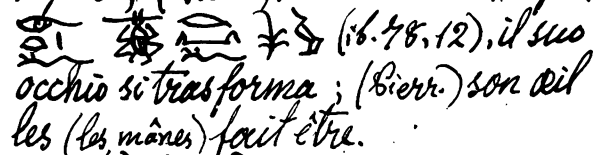 (ib. 78, 12), il suo
occhio si trasforma; (Pierr.) son œil
les (les mânes) fait être.